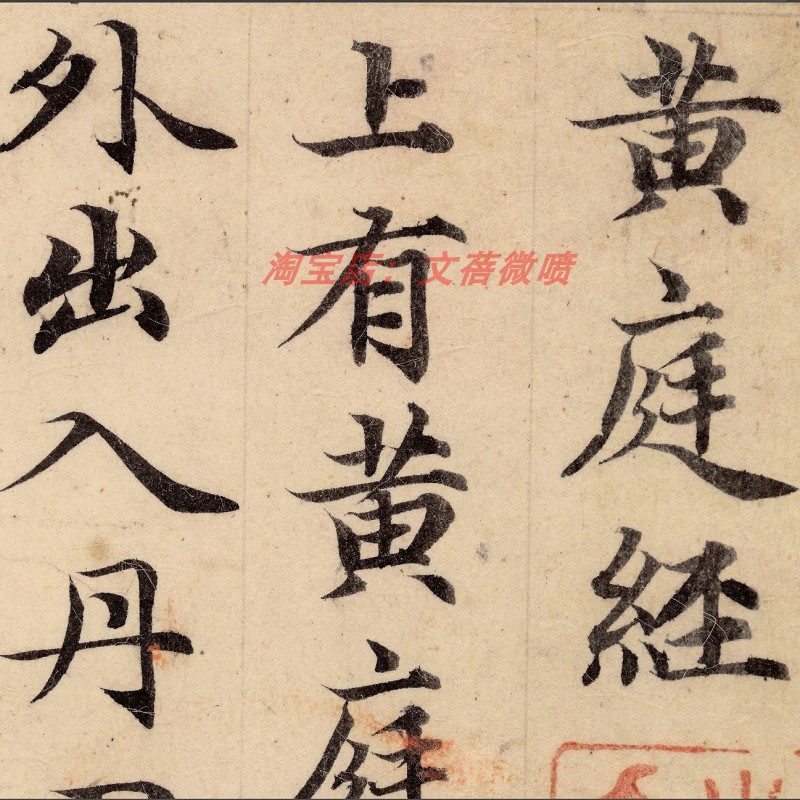 黄庭經
上有黄庭
外出入丹
淘宝店：文蓓微喷